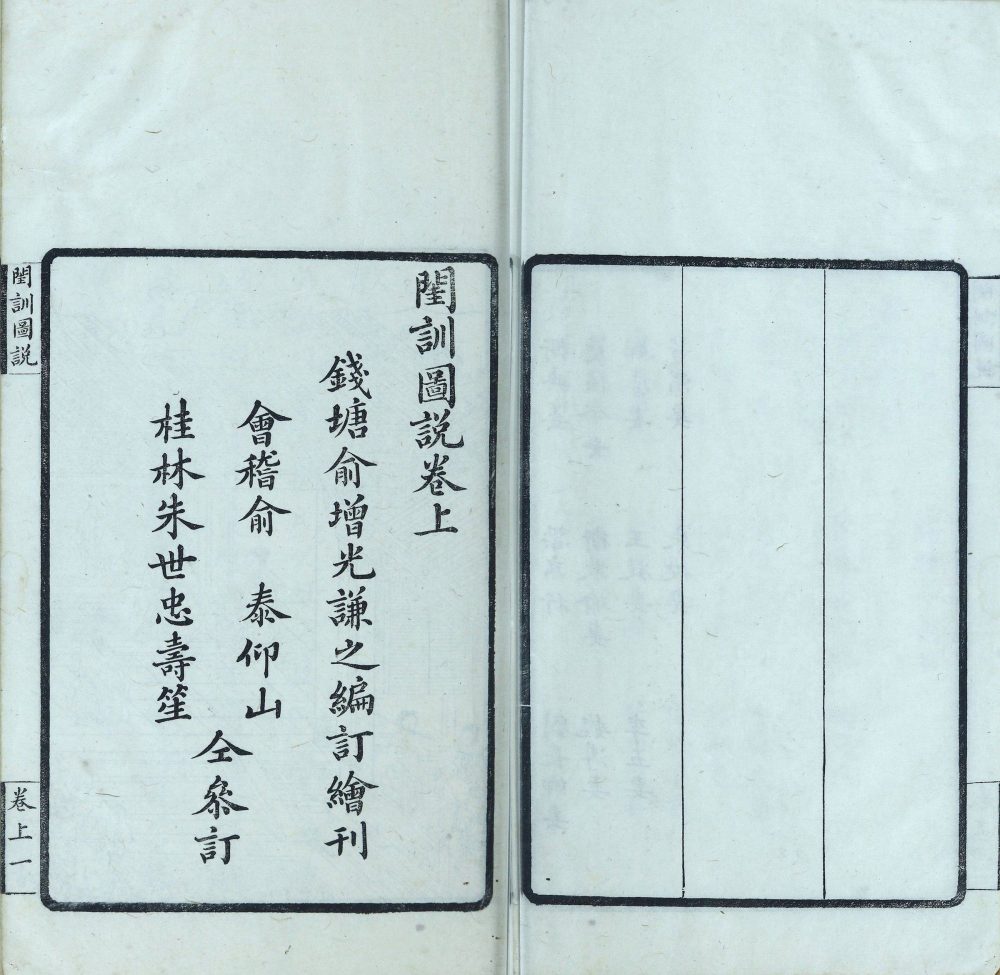 閨訓圖説卷上
錢塘俞增光謙之編訂繪刊
會稽俞　泰仰山
桂林朱世忠壽笙
仝叅訂
閨訓圖説
卷上一